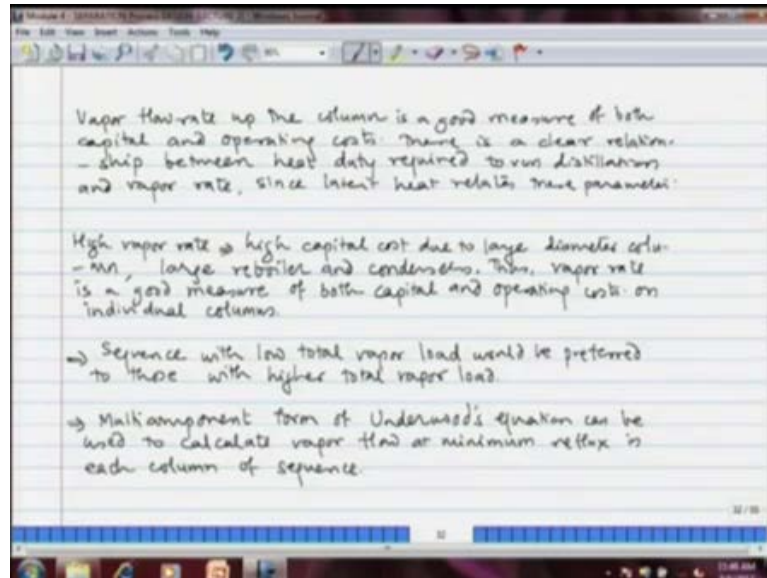 Module 4 - SEPARATION Process DESIGN (LECTURE 2) - Windows Journal
File Edit View Insert Actions Tools Help
Vapor flowrate up the column is a good measure of both
capital and operating costs. There is a clear relation-
-ship between heat duty required to run distillation
and vapor rate, since latent heat relates these parameter.
High vapor rate → high capital cost due to large diameter colu-
-mn, large reboiler and condensers. Thus, vapor rate
is a good measure of both capital and operating costs on
individual columns.
→ Sequence with low total vapor load would be preferred
to those with higher total vapor load.
→ Multicomponent form of Underwood's equation can be
used to calculate vapor flow at minimum reflux in
each column of sequence.
32
11:46 AM